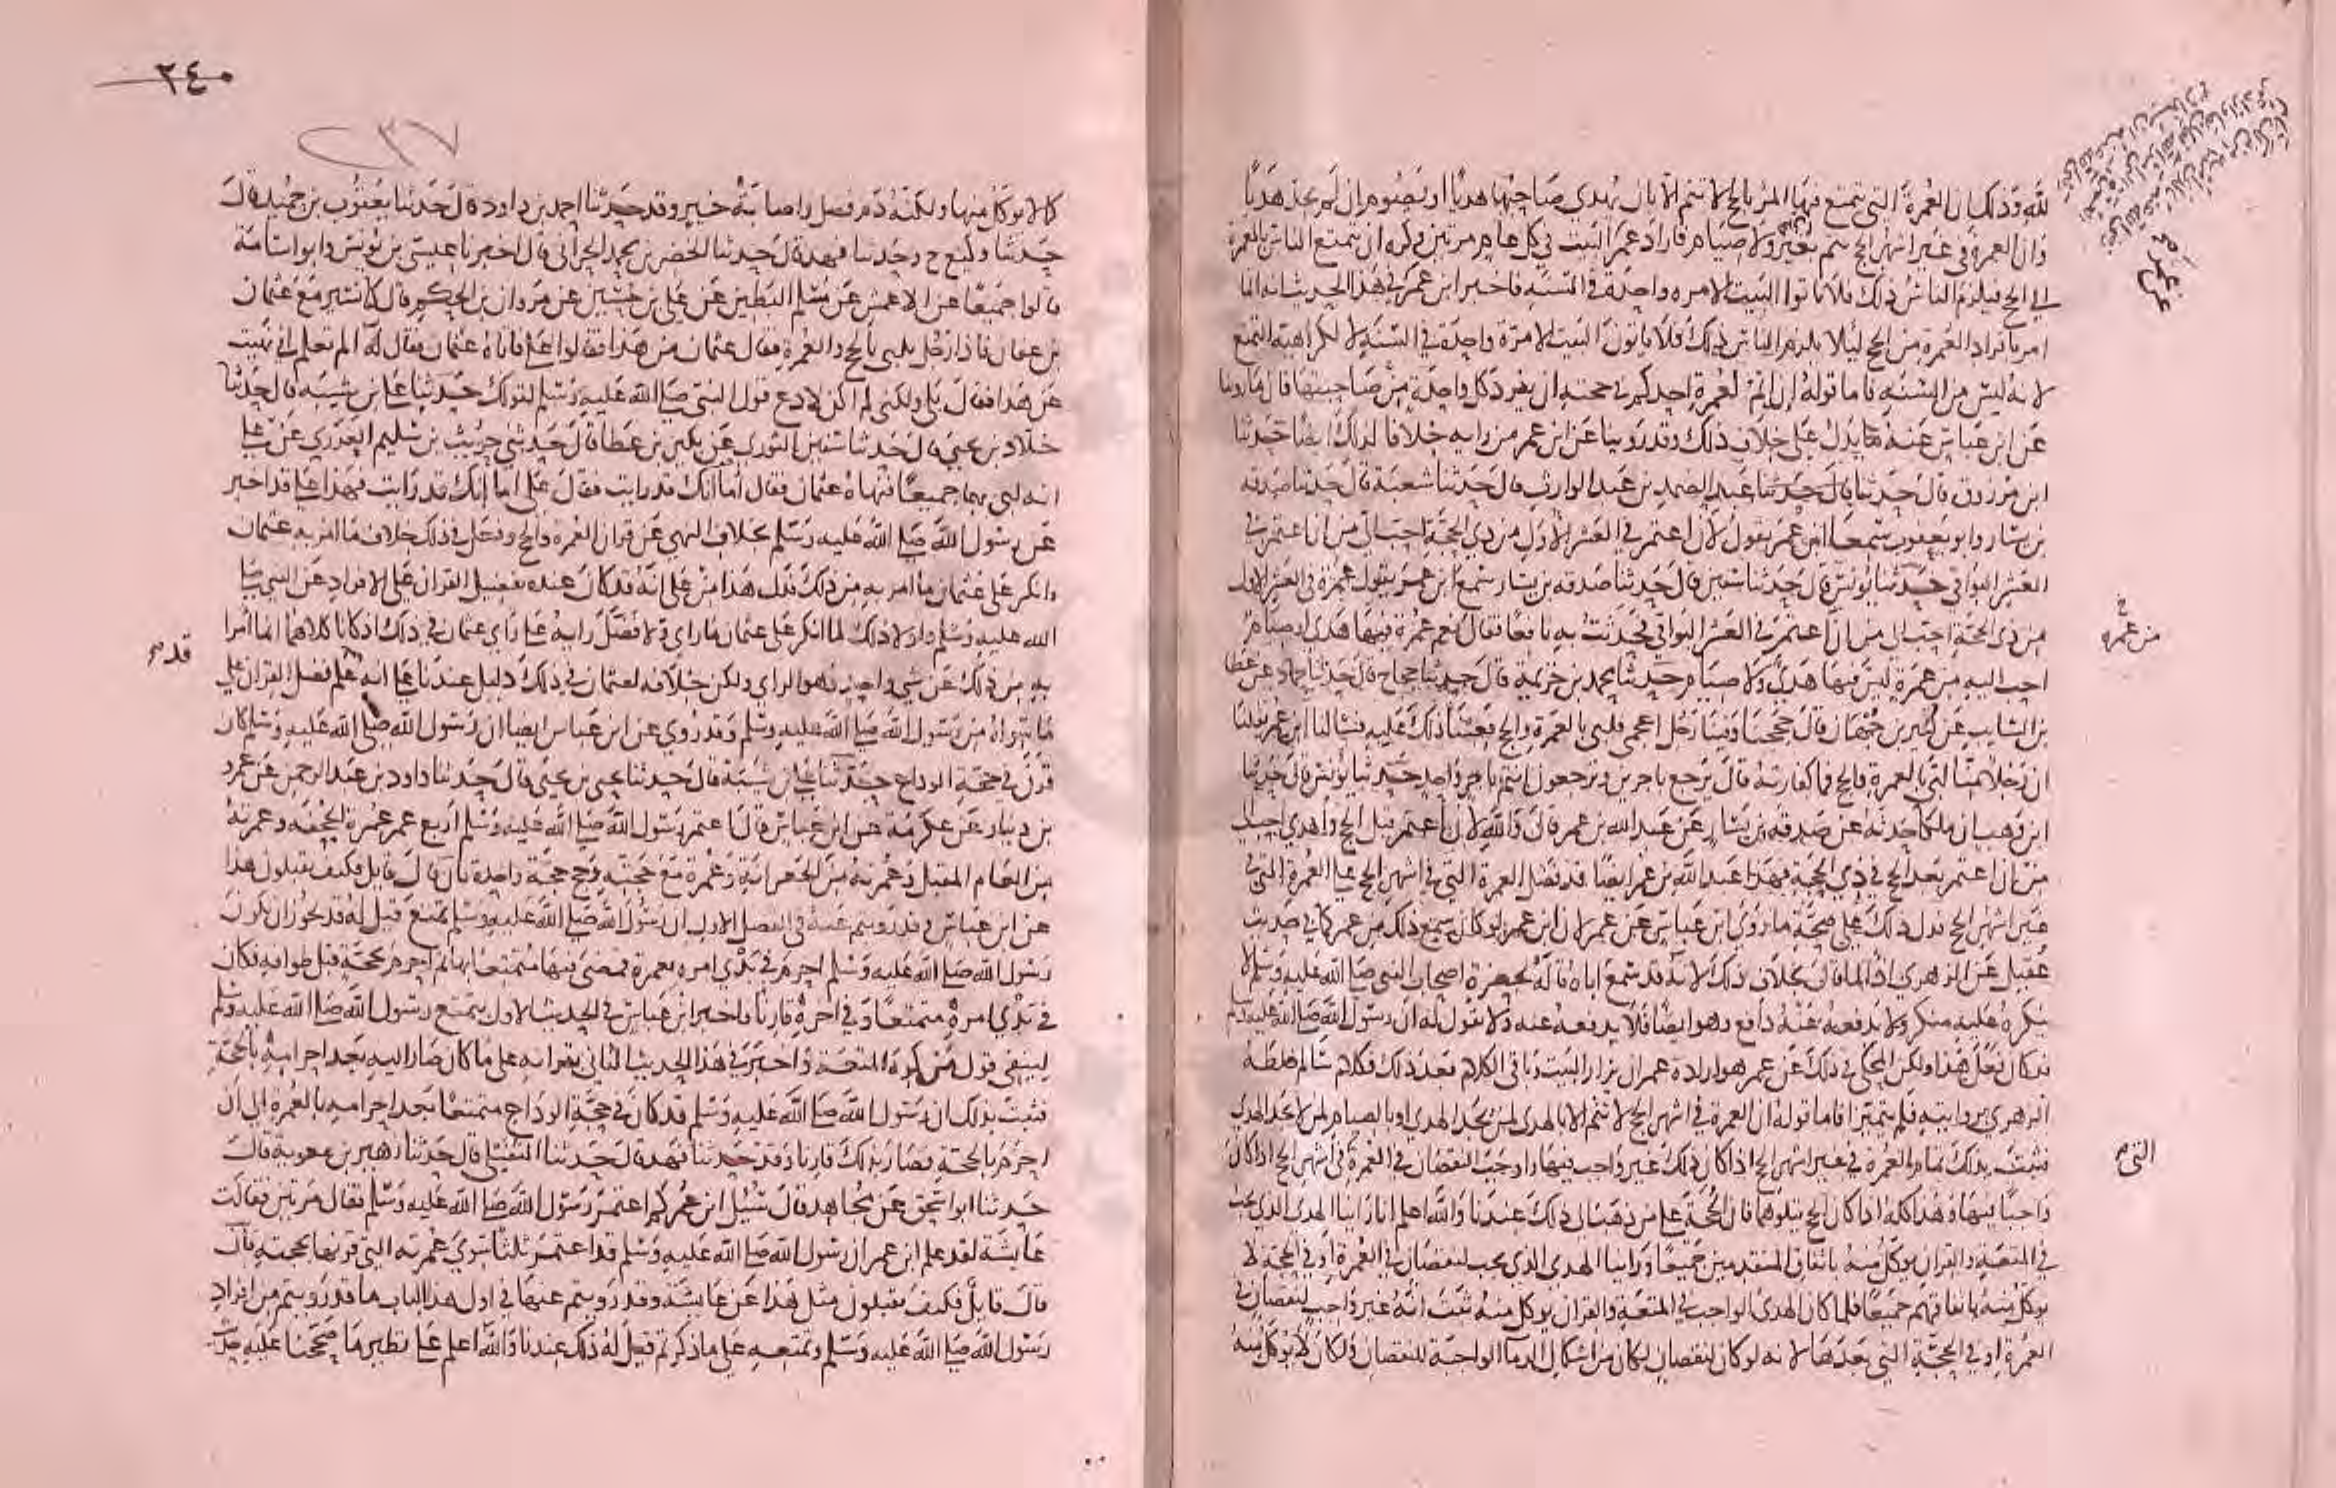 لله وذلك ان العمرة التي يتمتع فيها المرء بالحج لا تتم الا بان يهدي صاحبها هديا او يصوم ان لم يجد هديا
وان العمرة في غير اشهر الحج تتم بغير هدي ولا صيام فاراد عمر ان يزار البيت في كل عام مرتين وكره ان يتمتع الناس بالعمرة
الى الحج فيلزم الناس ذلك فلا ياتوا البيت الا مرة واحدة في السنة فاخبر ابن عمر في هذا الحديث انه انما
امر بافراد العمرة من الحج ليلا يلزم الناس ذلك فلا ياتون البيت الا مرة واحدة في السنة لا لكراهية التمتع
لانه ليس من السنة فاما قوله ان اتم لعمرة احدكم وحجته ان يفرد كل واحدة من صاحبتها فان ما روينا
عن ابن عباس عنه يدل على خلاف ذلك وقد روينا عن ابن عمر من رايه خلافا لذلك ايضا حدثنا
ابن مرزوق قال حدثنا قال حدثنا عبد الصمد بن عبد الوارث قال حدثنا شعبة قال حدثنا صدقة
بن يسار وابو يعفور سمعا ابن عمر يقول لان اعتمر في العشر الاول من ذي الحجة احب الي من ان اعتمر في
العشر البواقي حدثنا يونس قال حدثنا سفين قال حدثنا صدقة بن يسار سمع ابن عمر يقول عمرة في العشر الاول
من ذي الحجة احب الي من ان اعتمر في العشر البواقي فحدثت به نافعا فقال نعم عمرة فيها هدي او صيام
احب اليه من عمرة ليس فيها هدي ولا صيام حدثنا محمد بن خزيمة قال حدثنا حجاج قال حدثنا حماد عن عطا
بن السايب عن كثير بن جمهان قال حججنا وفينا رجل اعجمي فلبى بالعمرة والحج فعبنا ذلك عليه فسالنا ابن عمر فقلنا
ان رجلا منا لبى بالعمرة والحج فما كفارته قال يرجع باجرين وترجعون انتم باجر واحد حدثنا يونس قال حدثنا
ابن وهب ان مالكا حدثه عن صدقة بن يسار عن عبد الله بن عمر قال والله لان اعتمر قبل الحج واهدي احب الي
من ان اعتمر بعد الحج في ذي الحجة فهذا عبد الله بن عمر ايضا قد فضل العمرة التي في اشهر الحج على العمرة التي في
غير اشهر الحج فدل ذلك على صحة ما روى ابن عباس عن عمر لان ابن عمر لو كان سمع ذلك من عمر كما في حديث
عقيل عن الزهري اذا لما قال بخلاف ذلك لانه قد سمع اباه قاله بحضرة اصحاب النبي صلى الله عليه وسلم لا
ينكره عليه منكر ولا يدفعه عنه دافع وهو ايضا فلا يدفعه عنه ولا يقول له ان رسول الله صلى الله عليه وسلم
قد كان فعل هذا ولكن المحكي في ذلك عن عمر هو ارادة عمر ان يزار البيت وباقي الكلام بعد ذلك فكلام سالم خلطه
الزهري بروايته فلم يتميز فاما قوله ان العمرة في اشهر الحج لا تتم الا بالهدي لمن يجد الهدي او بالصيام لمن لا يجد الهدي
فثبت بذلك تمام العمرة في غير اشهر الحج اذا كان ذلك غير واجب فيها واوجب النقصان في العمرة في اشهر الحج اذا كان
واجبا فيها وهذا كله اذا كان الحج يتلوهما فان الحجة على من ذهب الى ذلك عندنا والله اعلم انا راينا الهدي الذي يجب
في المتعة والقران يوكل منه باتفاق المتقدمين جميعا وراينا الهدي الذي يجب لنقصان في العمرة او في الحجة لا
يوكل منه باتفاقهم جميعا فلما كان الهدي الواجب في المتعة والقران يوكل منه ثبت انه غير واجب لنقصان في
العمرة او في الحجة التي بعدها لانه لو كان لنقصان لكان من اشكال الدما الواجبة للنقصان ولكان لا يوكل منه
من عمره
التي
٢٤٠
٢٣٧
كما لا يوكل منها ولكنه دم فضل واصابة خير وقد حدثنا احمد بن داود قال حدثنا يعقوب بن حميد قال
حدثنا وكيع ح وحدثنا فهد قال حدثنا الخضر بن محمد الحراني قال اخبرنا عيسى بن يونس وابو اسامة
قالوا جميعا عن الاعمش عن مسلم البطين عن علي بن حسين عن مروان بن الحكم قال كنا نسير مع عثمان
بن عفان فاذا رجل يلبي بالحج والعمرة فقال عثمان من هذا فقالوا علي فاتاه عثمان فقال له الم تعلم اني نهيت
عن هذا فقال بلى ولكني لم اكن لادع قول النبي صلى الله عليه وسلم لقولك حدثنا علي بن شيبة قال حدثنا
خلاد بن يحيى قال حدثنا سفين الثوري عن بكير بن عطا قال حدثني حريث بن سليم العذري عن علي
انه لبى بهما جميعا فنهاه عثمان فقال اما انك قد رايت فقال علي اما انك قد رايت فهذا علي قد اخبر
عن رسول الله صلى الله عليه وسلم بخلاف النهي عن قران العمرة والحج وفعل في ذلك خلاف ما امر به عثمان
وانكر على عثمان ما امر به من ذلك فدل هذا من علي انه قد كان عنده تفضيل القران على الافراد عن النبي صلى
الله عليه وسلم ولولا ذلك لما انكر على عثمان ما راى ولا فضل رايه على راي عثمان في ذلك اذ كانا كلاهما انما امرا
به من ذلك عن شي واحد وهو الراي ولكن خلافه لعثمان في ذلك دليل عندنا على انه علم فضل القران على
ما سواه من رسول الله صلى الله عليه وسلم وقد روي عن ابن عباس ايضا ان رسول الله صلى الله عليه وسلم كان
قرن في حجة الوداع حدثنا علي بن شيبة قال حدثنا يحيى بن يحيى قال حدثنا داود بن عبد الرحمن عن عمرو
بن دينار عن عكرمة عن ابن عباس قال اعتمر رسول الله صلى الله عليه وسلم اربع عمر عمرة الجحفة وعمرته
من العام المقبل وعمرته من الجعرانة وعمرة مع حجته وحج حجة واحدة فان قال قايل فكيف تقبلون هذا
عن ابن عباس وقد رويتم عنه في الفصل الاول ان رسول الله صلى الله عليه وسلم تمتع قيل له قد يجوز ان يكون
رسول الله صلى الله عليه وسلم احرم في بدي امره بعمرة فمضى فيها متمتعا بها ثم احرم بحجة قبل طوافه فكان
في بدي امره متمتعا وفي اخره قارنا فاخبر ابن عباس في الحديث الاول بتمتع رسول الله صلى الله عليه وسلم
لينفي قول من كره المتعة واخبر في هذا الحديث الثاني بقرانه على ما كان صار اليه بعد احرامه بالحجة
فثبت بذلك ان رسول الله صلى الله عليه وسلم قد كان في حجة الوداع متمتعا بعد احرامه بالعمرة الى ان
احرم بالحجة فصار بذلك قارنا وقد حدثنا فهد قال حدثنا النفيلي قال حدثنا زهير بن معوية قال
حدثنا ابو اسحق عن مجاهد قال سئل ابن عمر كم اعتمر رسول الله صلى الله عليه وسلم فقال مرتين فقالت
عايشة لقد علم ابن عمر ان رسول الله صلى الله عليه وسلم قد اعتمر ثلثا سوى عمرته التي قرنها بحجته فان
قال قايل فكيف تقبلون مثل هذا عن عايشة وقد رويتم عنها في اول هذا الباب ما قد رويتم من افراد
رسول الله صلى الله عليه وسلم وتمتعه على ما ذكرتم قيل له ذلك عندنا والله اعلم على نظير ما صححنا عليه
قد